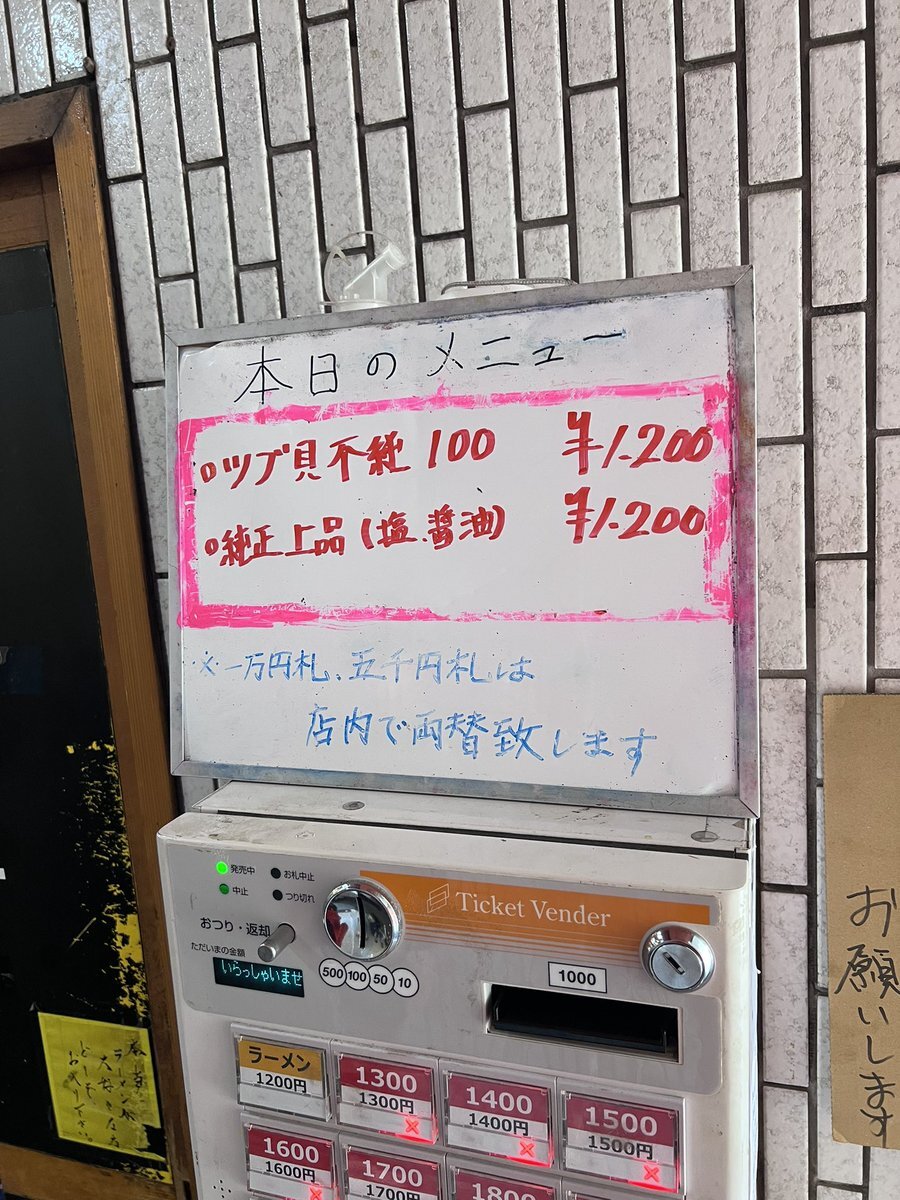 本日のメニュー
○ツブ貝不純100 ¥1.200
○純正上品(塩.醤油) ¥1.200
※一万円札、五千円札は
店内で両替致します
発売中 お札中止
中止 つり切れ
Ticket Vender
おつり・返却
ただいまの金額
いらっしゃいませ
500 100 50 10
1000
ラーメン
1200円
1300
1300円
1400
1400円
1500
1500円
1600
1600円
1700
1700円
1800
お願いします